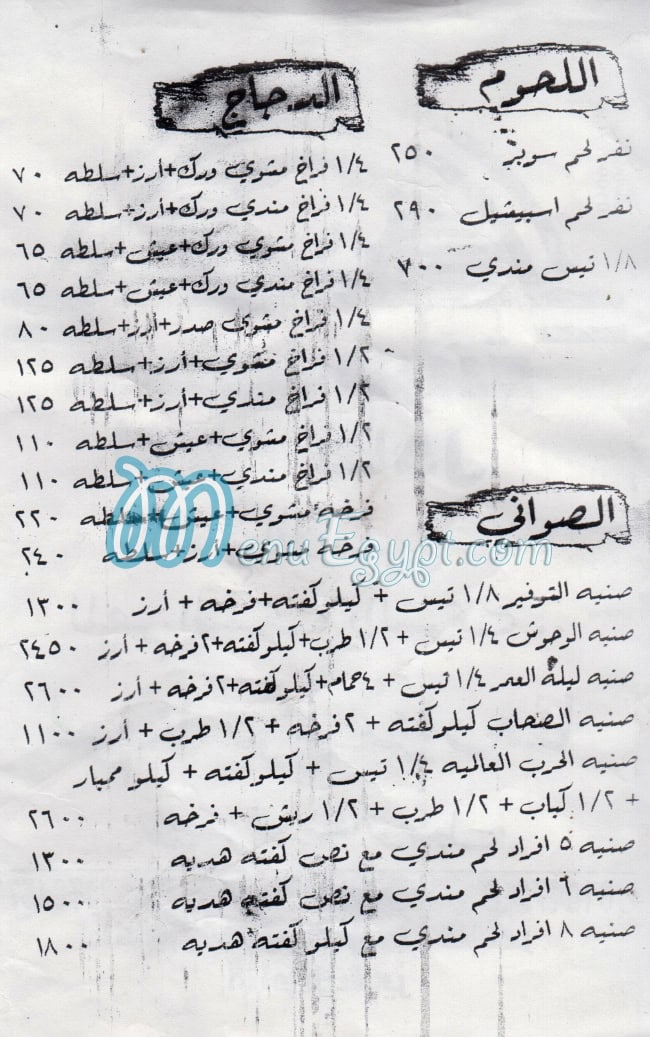 اللحوم
نفر لحم سوبر ٢٥٠
نفر لحم اسبيشيل ٢٩٠
١/٨ تيس مندي ٧٠٠
الدجاج
١/٤ فراخ مشوي ورك+أرز+سلطه ٧٠
١/٤ فراخ مندي ورك+أرز+سلطه ٧٠
١/٤ فراخ مشوي ورك+عيش+سلطه ٦٥
١/٤ فراخ مندي ورك+عيش+سلطه ٦٥
١/٤ فراخ مشوي صدر+أرز+سلطه ٨٠
١/٢ فراخ مشوي+أرز+سلطه ١٢٥
١/٢ فراخ مندي+أرز+سلطه ١٢٥
١/٢ فراخ مشوي+عيش+سلطه ١١٠
١/٢ فراخ مندي+عيش+سلطه ١١٠
فرخه مشوي+عيش+سلطه ٢٢٠
فرخه مشوي+أرز+سلطه ٢٤٠
MenuEgypt.com
الصواني
صنيه التوفير ١/٨ تيس + كيلو كفته+فرخه + أرز ١٣٠٠
صنيه الوحوش ١/٤ تيس + ١/٢ طرب+كيلو كفته+٢فرخه + أرز ٢٤٥٠
صنيه ليلة العمر ١/٤ تيس + ٤حمام+كيلو كفته+٢فرخه + أرز ٢٦٠٠
صنيه الصحاب كيلو كفته + ٢ فرخه + ١/٢ طرب + أرز ١١٠٠
صنيه الحرب العاليه ١/٤ تيس + كيلو كفته + كيلو ممبار
+ ١/٢ كباب + ١/٢ طرب + ١/٢ ريش + فرخه ٢٦٠٠
صنيه ٥ افراد لحم مندي مع نص كفته هديه ١٣٠٠
صنيه ٦ افراد لحم مندي مع نص كفته هديه ١٥٠٠
صنيه ٨ افراد لحم مندي مع كيلو كفته هديه ١٨٠٠